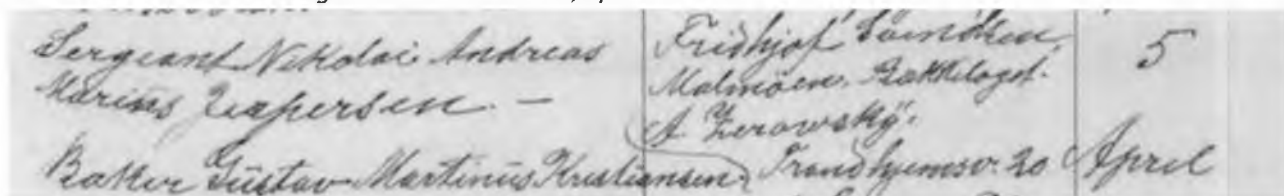 Sergeant Nikolai Andreas
Marius Jespersen. –
Fridhjof Svendsen,
Malmöen. Bakkeloget.
A. Zerowsky.
5
Baker Gustav Martinus Kristiansen, Trondhjemsv. 20 April